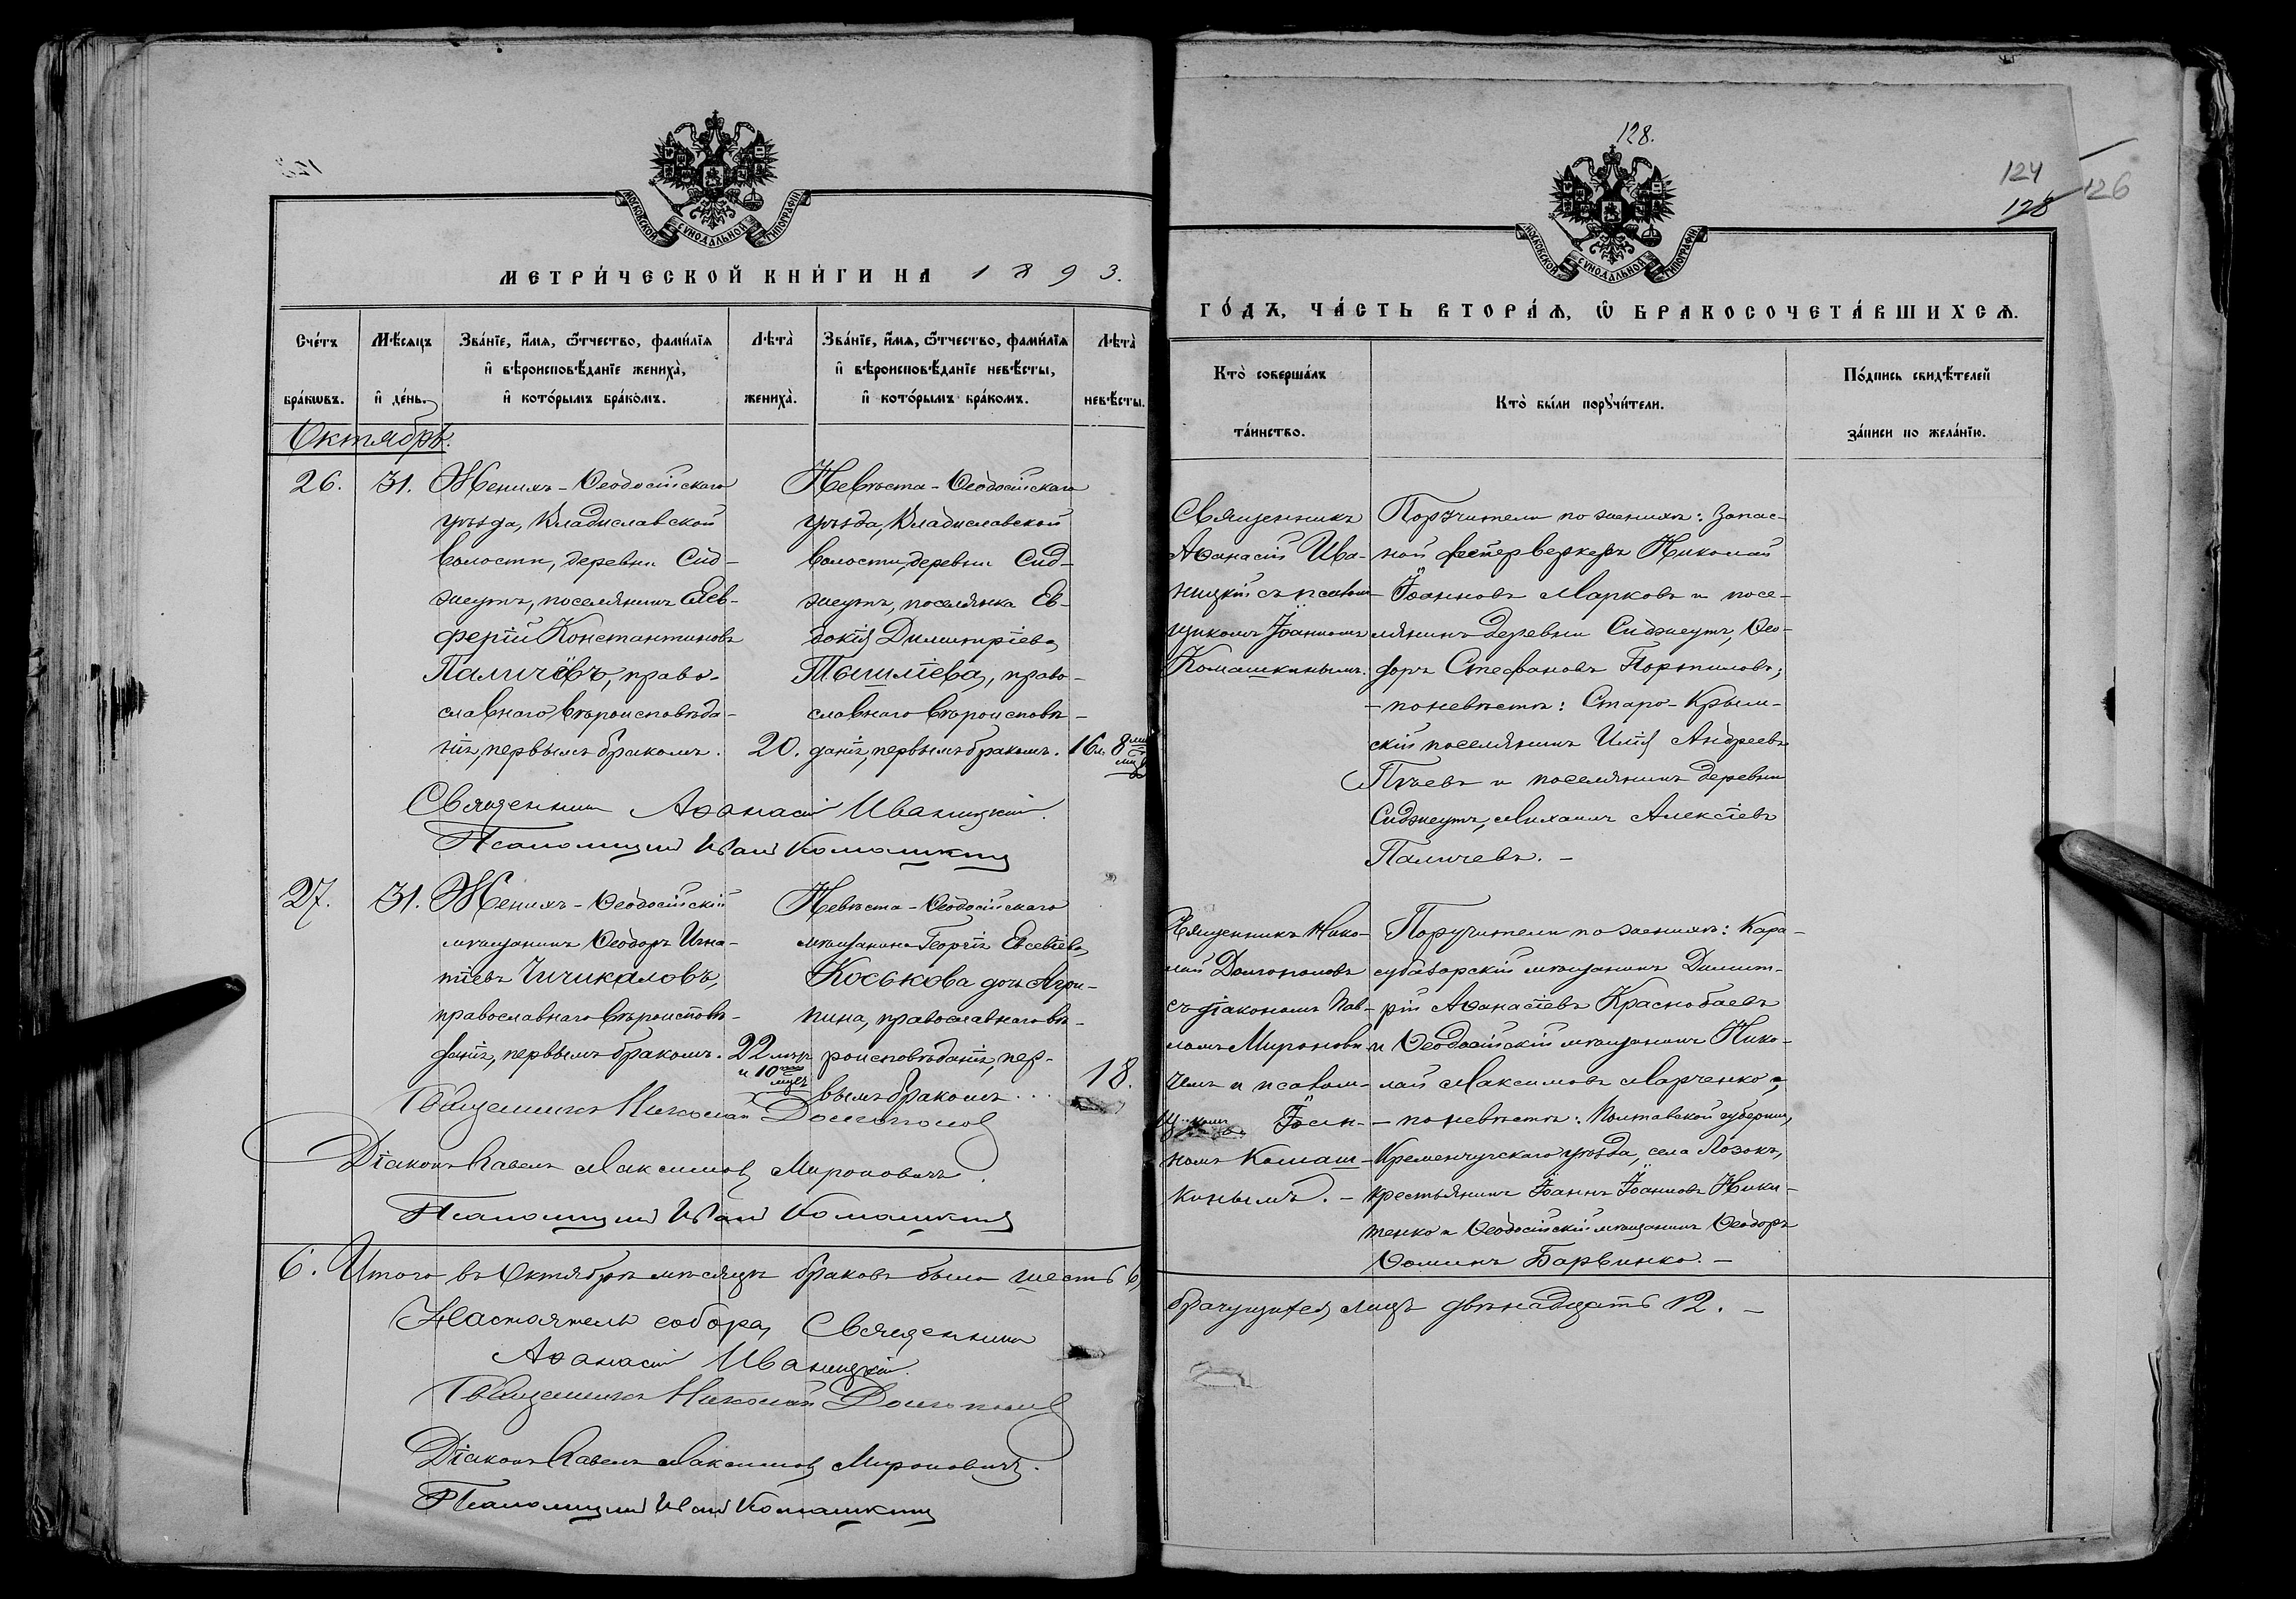 128.
124
128
126
МОСКОВСКОЙ СѴНОДАЛЬНОЙ ТИПОГРАФІИ
МЕТРИ́ЧЕСКОЙ КНИ́ГИ НА 1893.
Сче́тъ бра́кѡвъ.
Мѣ́сяцъ и҆ де́нь.
Зва́нїе, и҆́мя, ѻ҆́тчество, фами́лїя и҆ вѣроисповѣ́данїе жениха̀, и҆ кото́рымъ бра́комъ.
Лѣта̀ жениха̀.
Зва́нїе, и҆́мя, ѻ҆́тчество, фами́лїя и҆ вѣроисповѣ́данїе невѣ́сты, и҆ кото́рымъ бра́комъ.
Лѣта̀ невѣ́сты.
Октябрь.
26.
31.
Женихъ - Ѳеодосійскаго
уѣзда, Владиславской
волости, деревни Сид-
жеутъ, поселянинъ Елев-
ферій Константиновъ
Паличевъ, право-
славнаго вѣроисповѣда-
нія, первымъ бракомъ.
20.
Невѣста - Ѳеодосійскаго
уѣзда, Владиславской
волости, деревни Сид-
жеутъ, поселянка Ев-
докія Димитріева
православнаго вѣроисповѣ-
данія, первымъ бракомъ.
16 л. 8
Священникъ Аѳанасій Иваницкій.
Псаломщикъ Иванъ Комашкинъ
27.
31.
Женихъ - Ѳеодосійскій
мѣщанинъ Ѳеодоръ Игна-
тіевъ Чичикаловъ,
православнаго вѣроисповѣ-
данія, первымъ бракомъ.
22 лѣтъ
и 10
Невѣста - Ѳеодосійскаго
мѣщанина Георгія Евсевіева
Коськова дочь Агри-
пина, православнаго вѣ-
роисповѣданія, пер-
вымъ бракомъ...
18.
Священникъ Николай Долгополовъ
Діаконъ Павелъ Максимовъ Мироновичъ.
Псаломщикъ Иванъ Комашкинъ
6. Итого въ Октябрѣ мѣсяцѣ браковъ было шесть 6,
Настоятель собора, Священникъ
Аѳанасій Иваницкій.
Священникъ Николай Долгополовъ
Діаконъ Павелъ Максимовъ Мироновичъ.
Псаломщикъ Иванъ Комашкинъ
МОСКОВСКОЙ СѴНОДАЛЬНОЙ ТИПОГРАФІИ
ГО́ДЪ, ЧА́СТЬ ВТОРА́Ѧ, Ѽ БРАКОСОЧЕТА́ВШИХСѦ.
Кто̀ соверша́лъ та́инство.
Кто̀ бы́ли порꙋчи́тели.
По́дпись свидѣ́телей за́писи по жела́нїю.
Священникъ
Аѳанасій Ива-
ницкій съ псалом-
щикомъ Іоанномъ
Комашкинымъ.
Поручители по женихѣ: Запас-
ной фейерверкеръ Николай
Іоанновъ Марковъ и посе-
лянинъ деревни Сиджеутъ, Ѳео-
доръ Стефановъ Портиловъ;
- по невѣстѣ: Старо-Крым-
скій поселянинъ Илія Андреевъ
и поселянинъ деревни
Сиджеутъ, Михаилъ Алексіевъ
Паличевъ. -
Священникъ Нико-
лай Долгополовъ
съ діакономъ Пав-
ломъ Миронови-
чемъ и псалом-
щикомъ Іоан-
номъ Комаш-
кинымъ. -
Поручители по женихѣ: Кара-
субазарскій мѣщанинъ Димит-
рій Аѳанасіевъ Краснобаевъ
и Ѳеодосійскій мѣщанинъ Нико-
лай Максимовъ Марченко;
- по невѣстѣ: Полтавской губерніи,
Кременчугскаго уѣзда, села Лозокъ,
крестьянинъ Іоаннъ Іоанновъ Ники-
тенко и Ѳеодосійскій мѣщанинъ Ѳеодоръ
Ѳоминъ Барвинко. -
брачущихся лицъ двѣнадцать 12. -